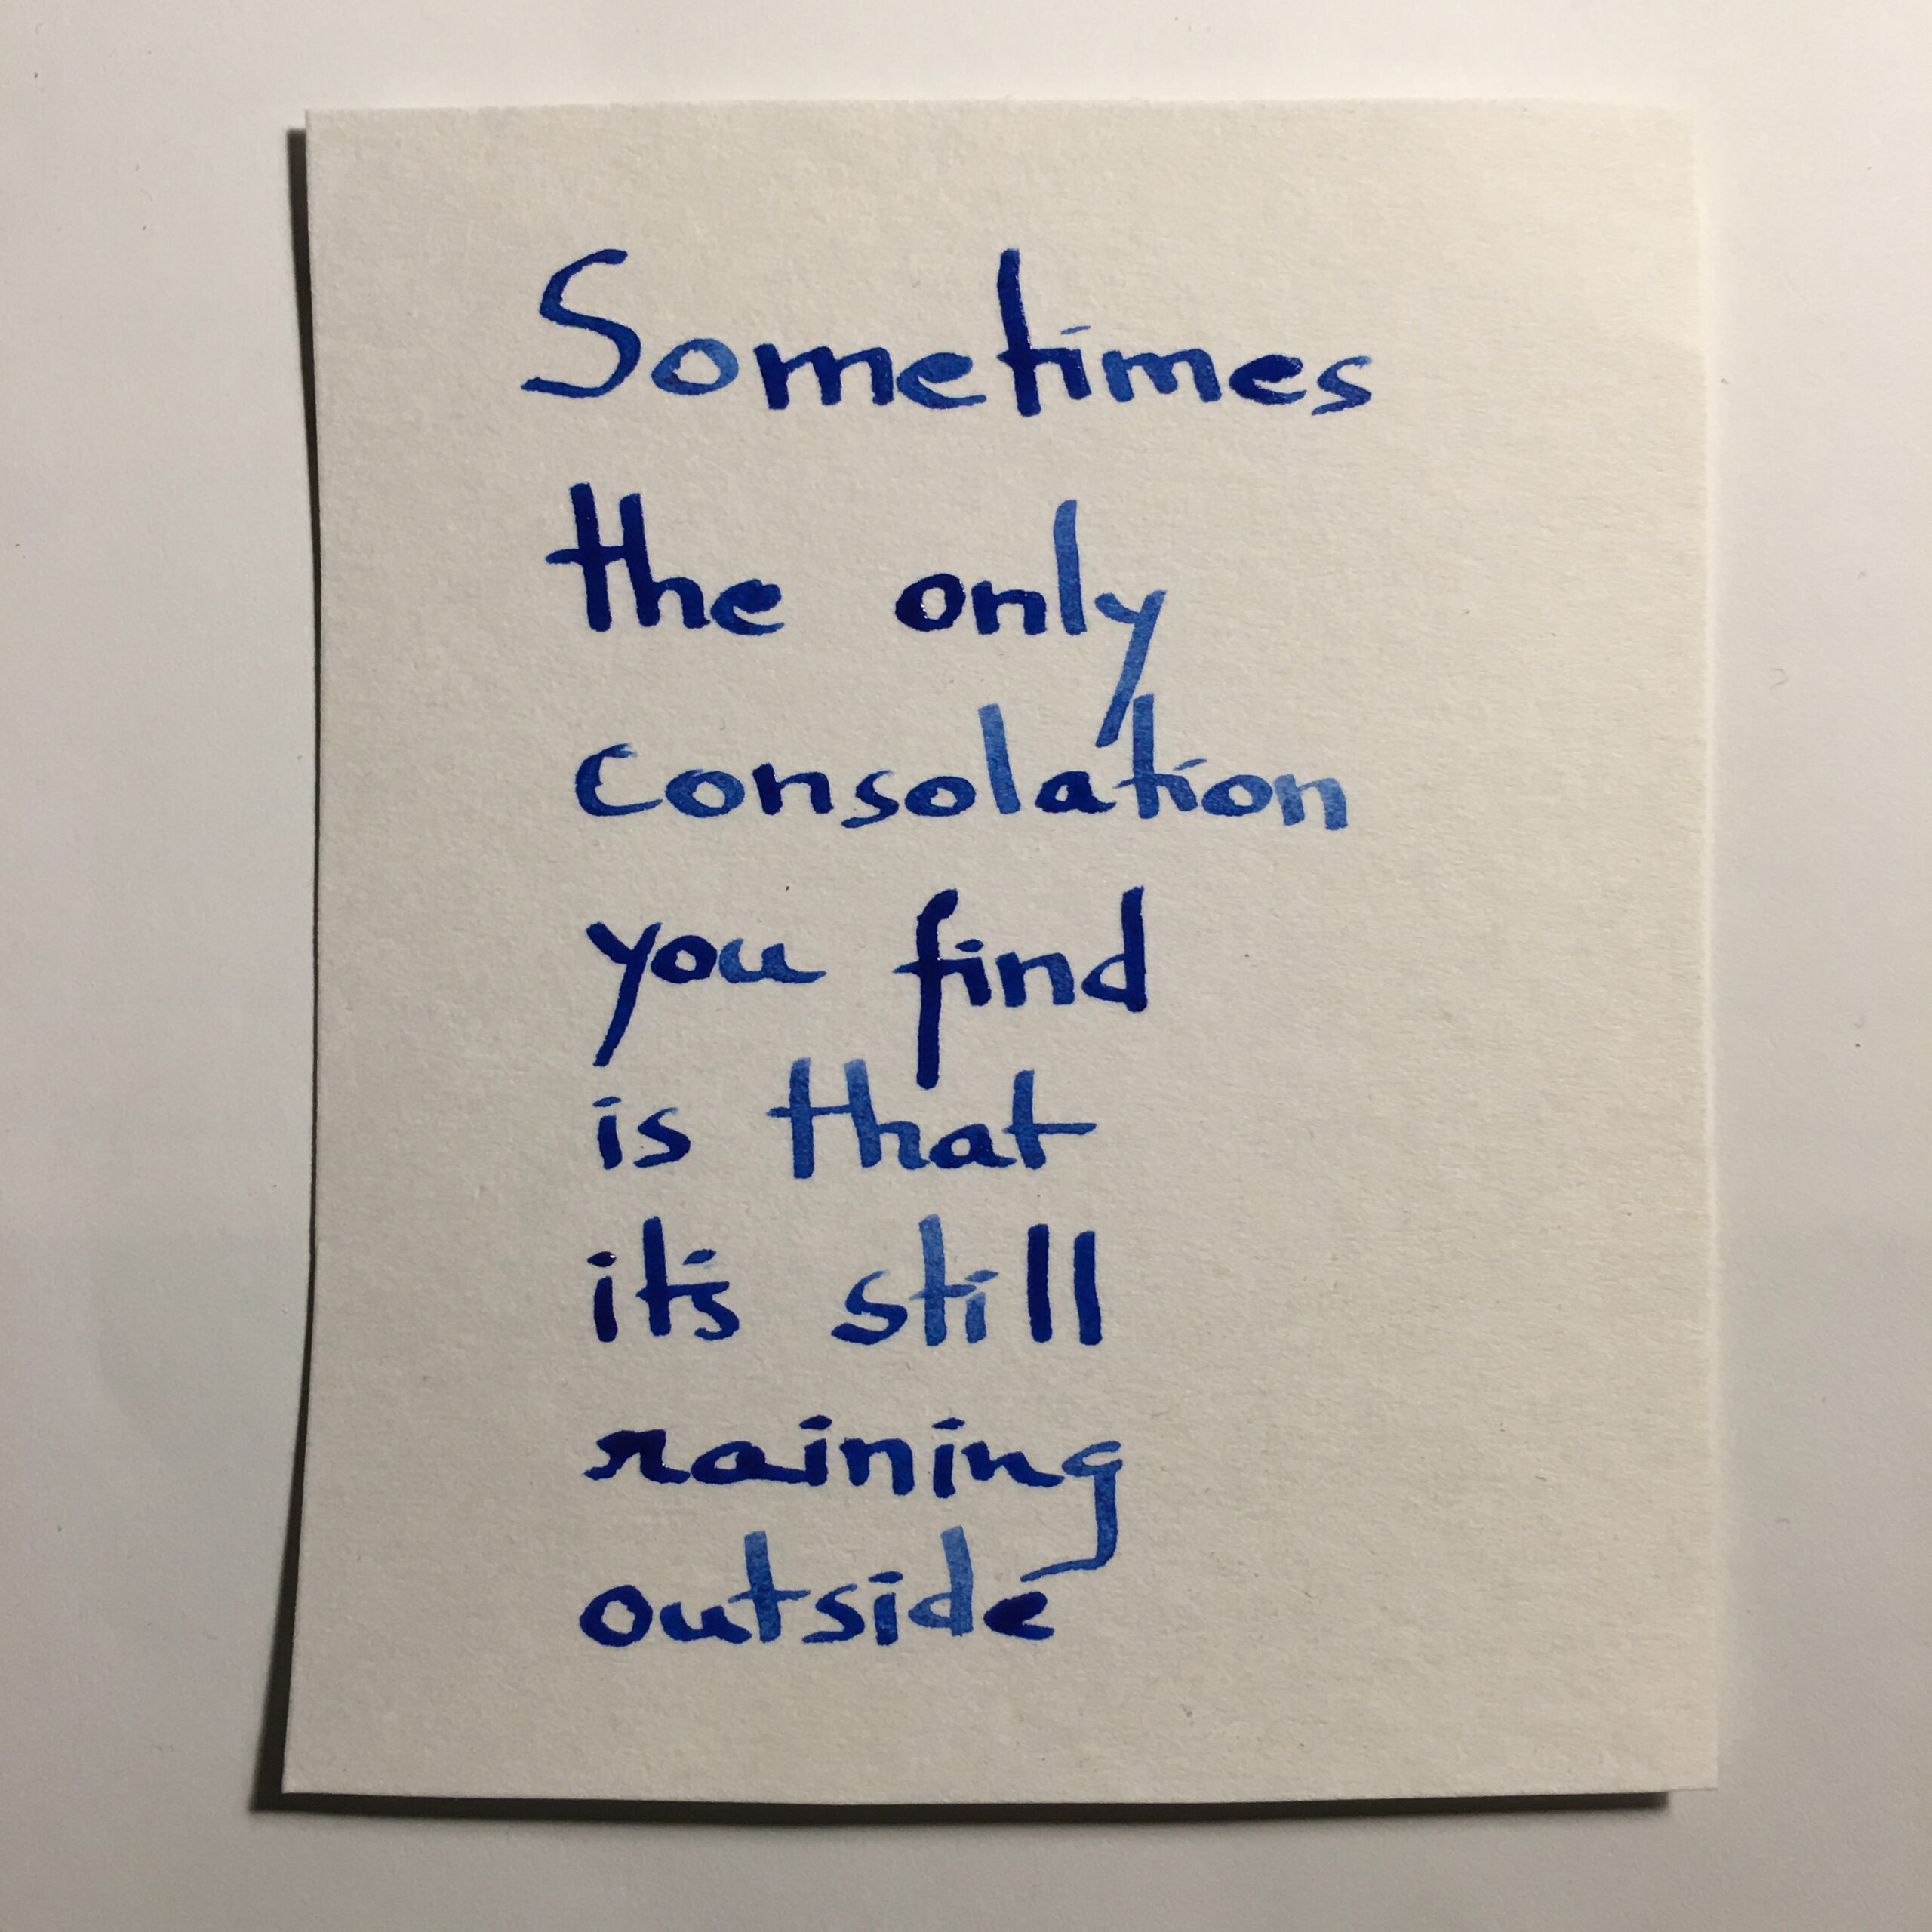 Sometimes
the only
consolation
you find
is that
it's still
raining
outside